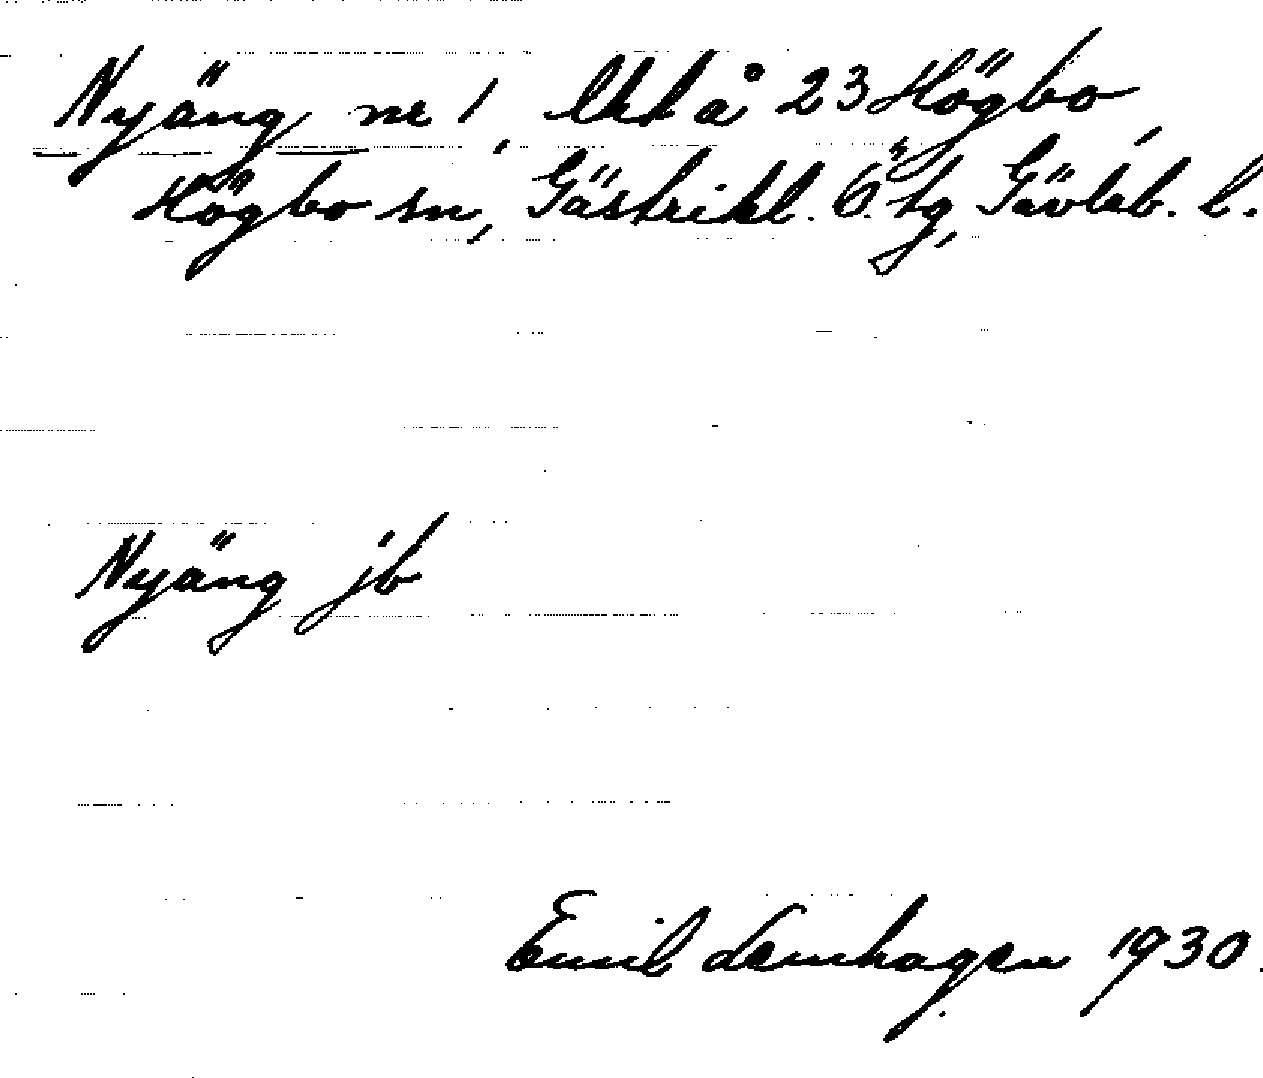 Nyäng nr 1, lht å 23 Högbo,
Högbo sn, Gästrikl. Ö. tg, Gävleb. l.
Nyäng jb
Emil Lemhagen 1930.